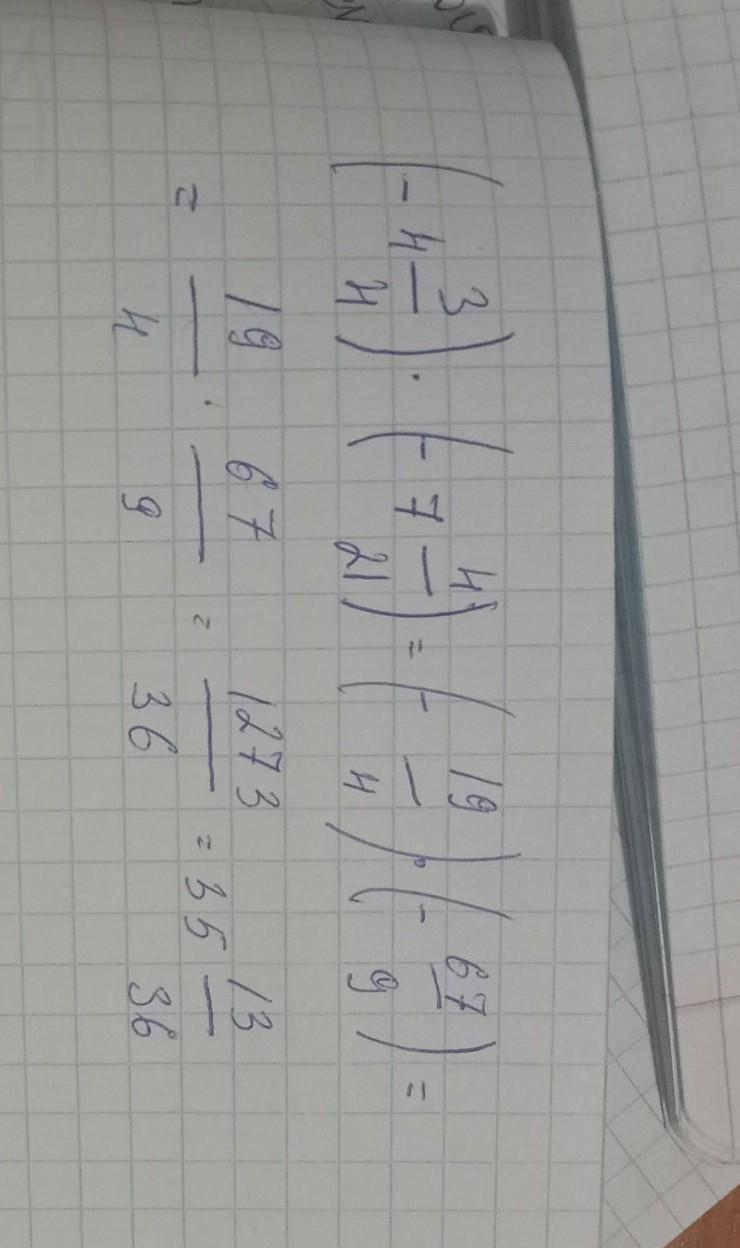 (-4 3/4) · (-7 4/21) = (-19/4) · (-67/9) =
= 19/4 · 67/9 = 1273/36 = 35 13/36